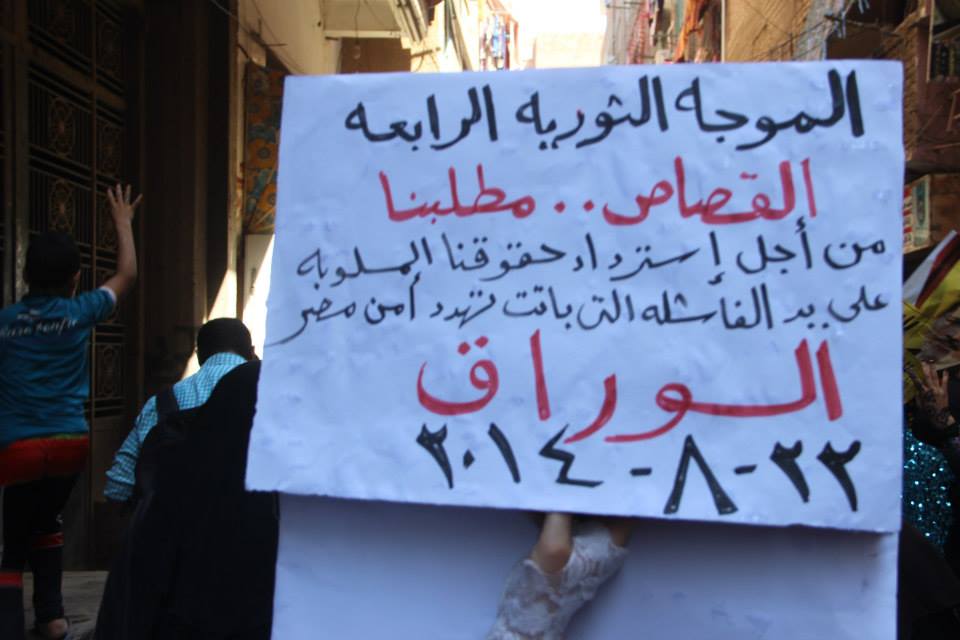 الموجه الثوريه الرابعه
القصاص.. مطلبنا
من أجل إسترداد حقوقنا المسلوبه
على يد الفاشله التى باتت تهدد أمن مصر
الوراق
٢٢-٨-٢٠١٤